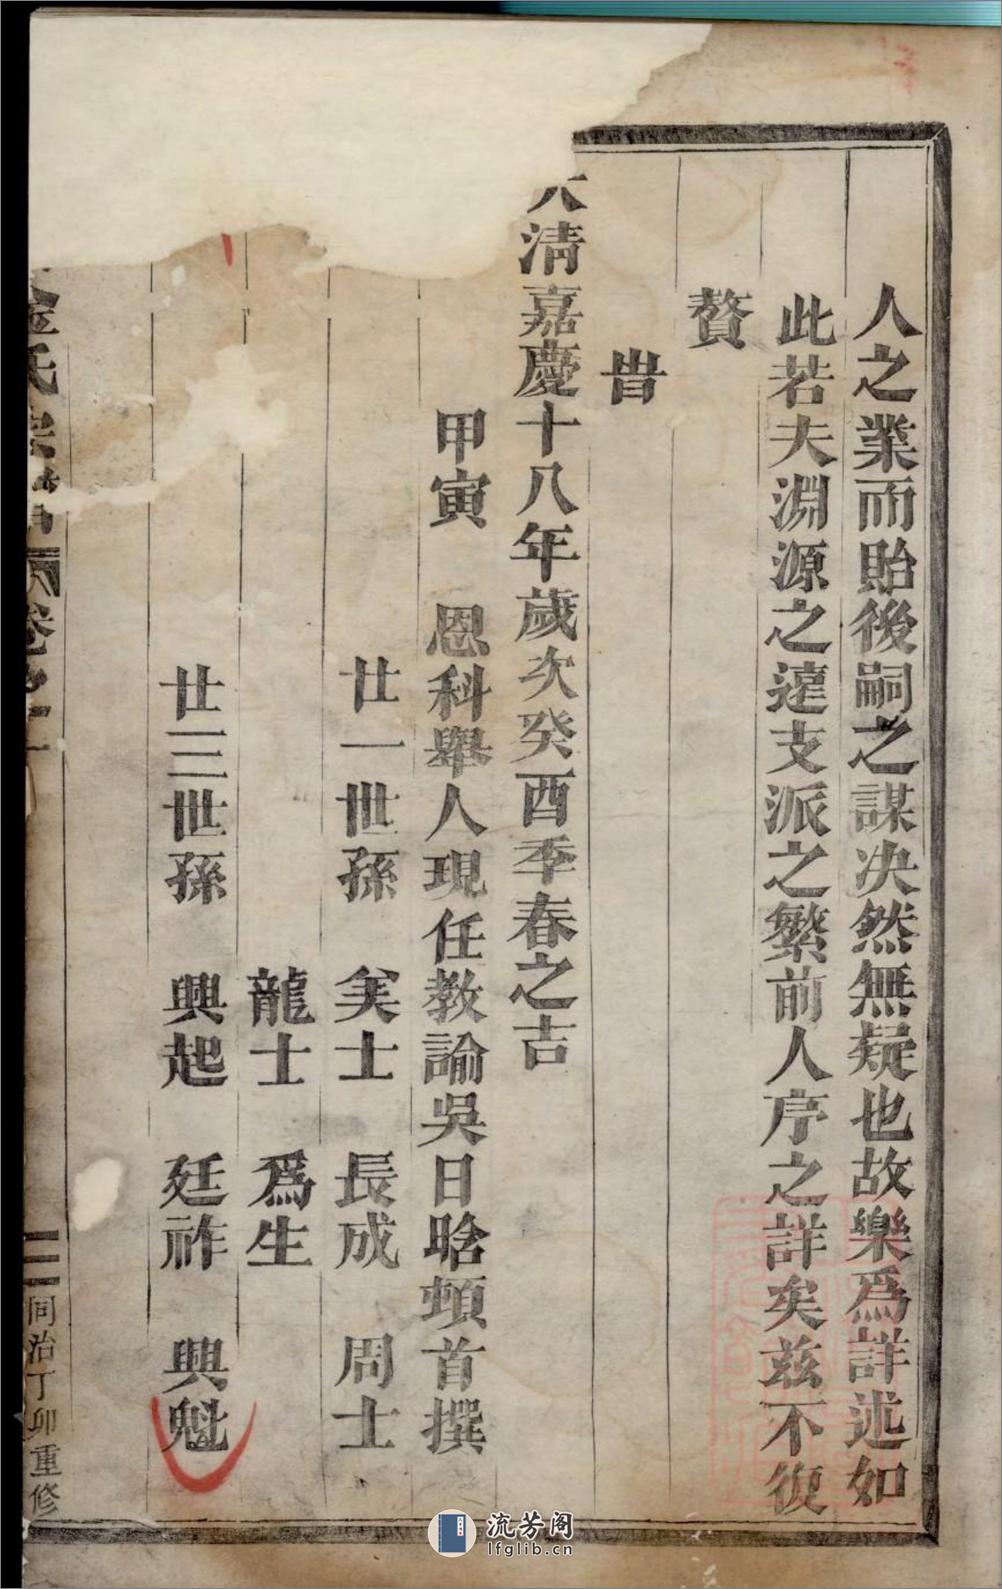 人之業而貽後嗣之謀决然無疑也故樂爲詳述如
此若夫淵源之遠支派之繁前人序之詳矣兹不復
贅
旹
大清嘉慶十八年歲次癸酉季春之吉
甲寅 恩科舉人現任教諭吳日晗頓首撰
廿一世孫 矣士 長成 周士
龍士 爲生
廿三世孫 興起 廷祚 興魁
金氏宗譜 卷之一
二
同治丁卯重修
流芳阁
lfglib.cn